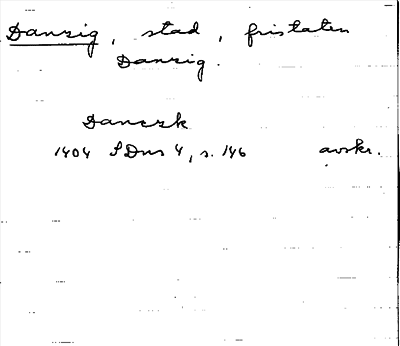 Danzig, stad, fristaten
Danzig.
Danczk
1404 SDns 4, s. 146 avskr.